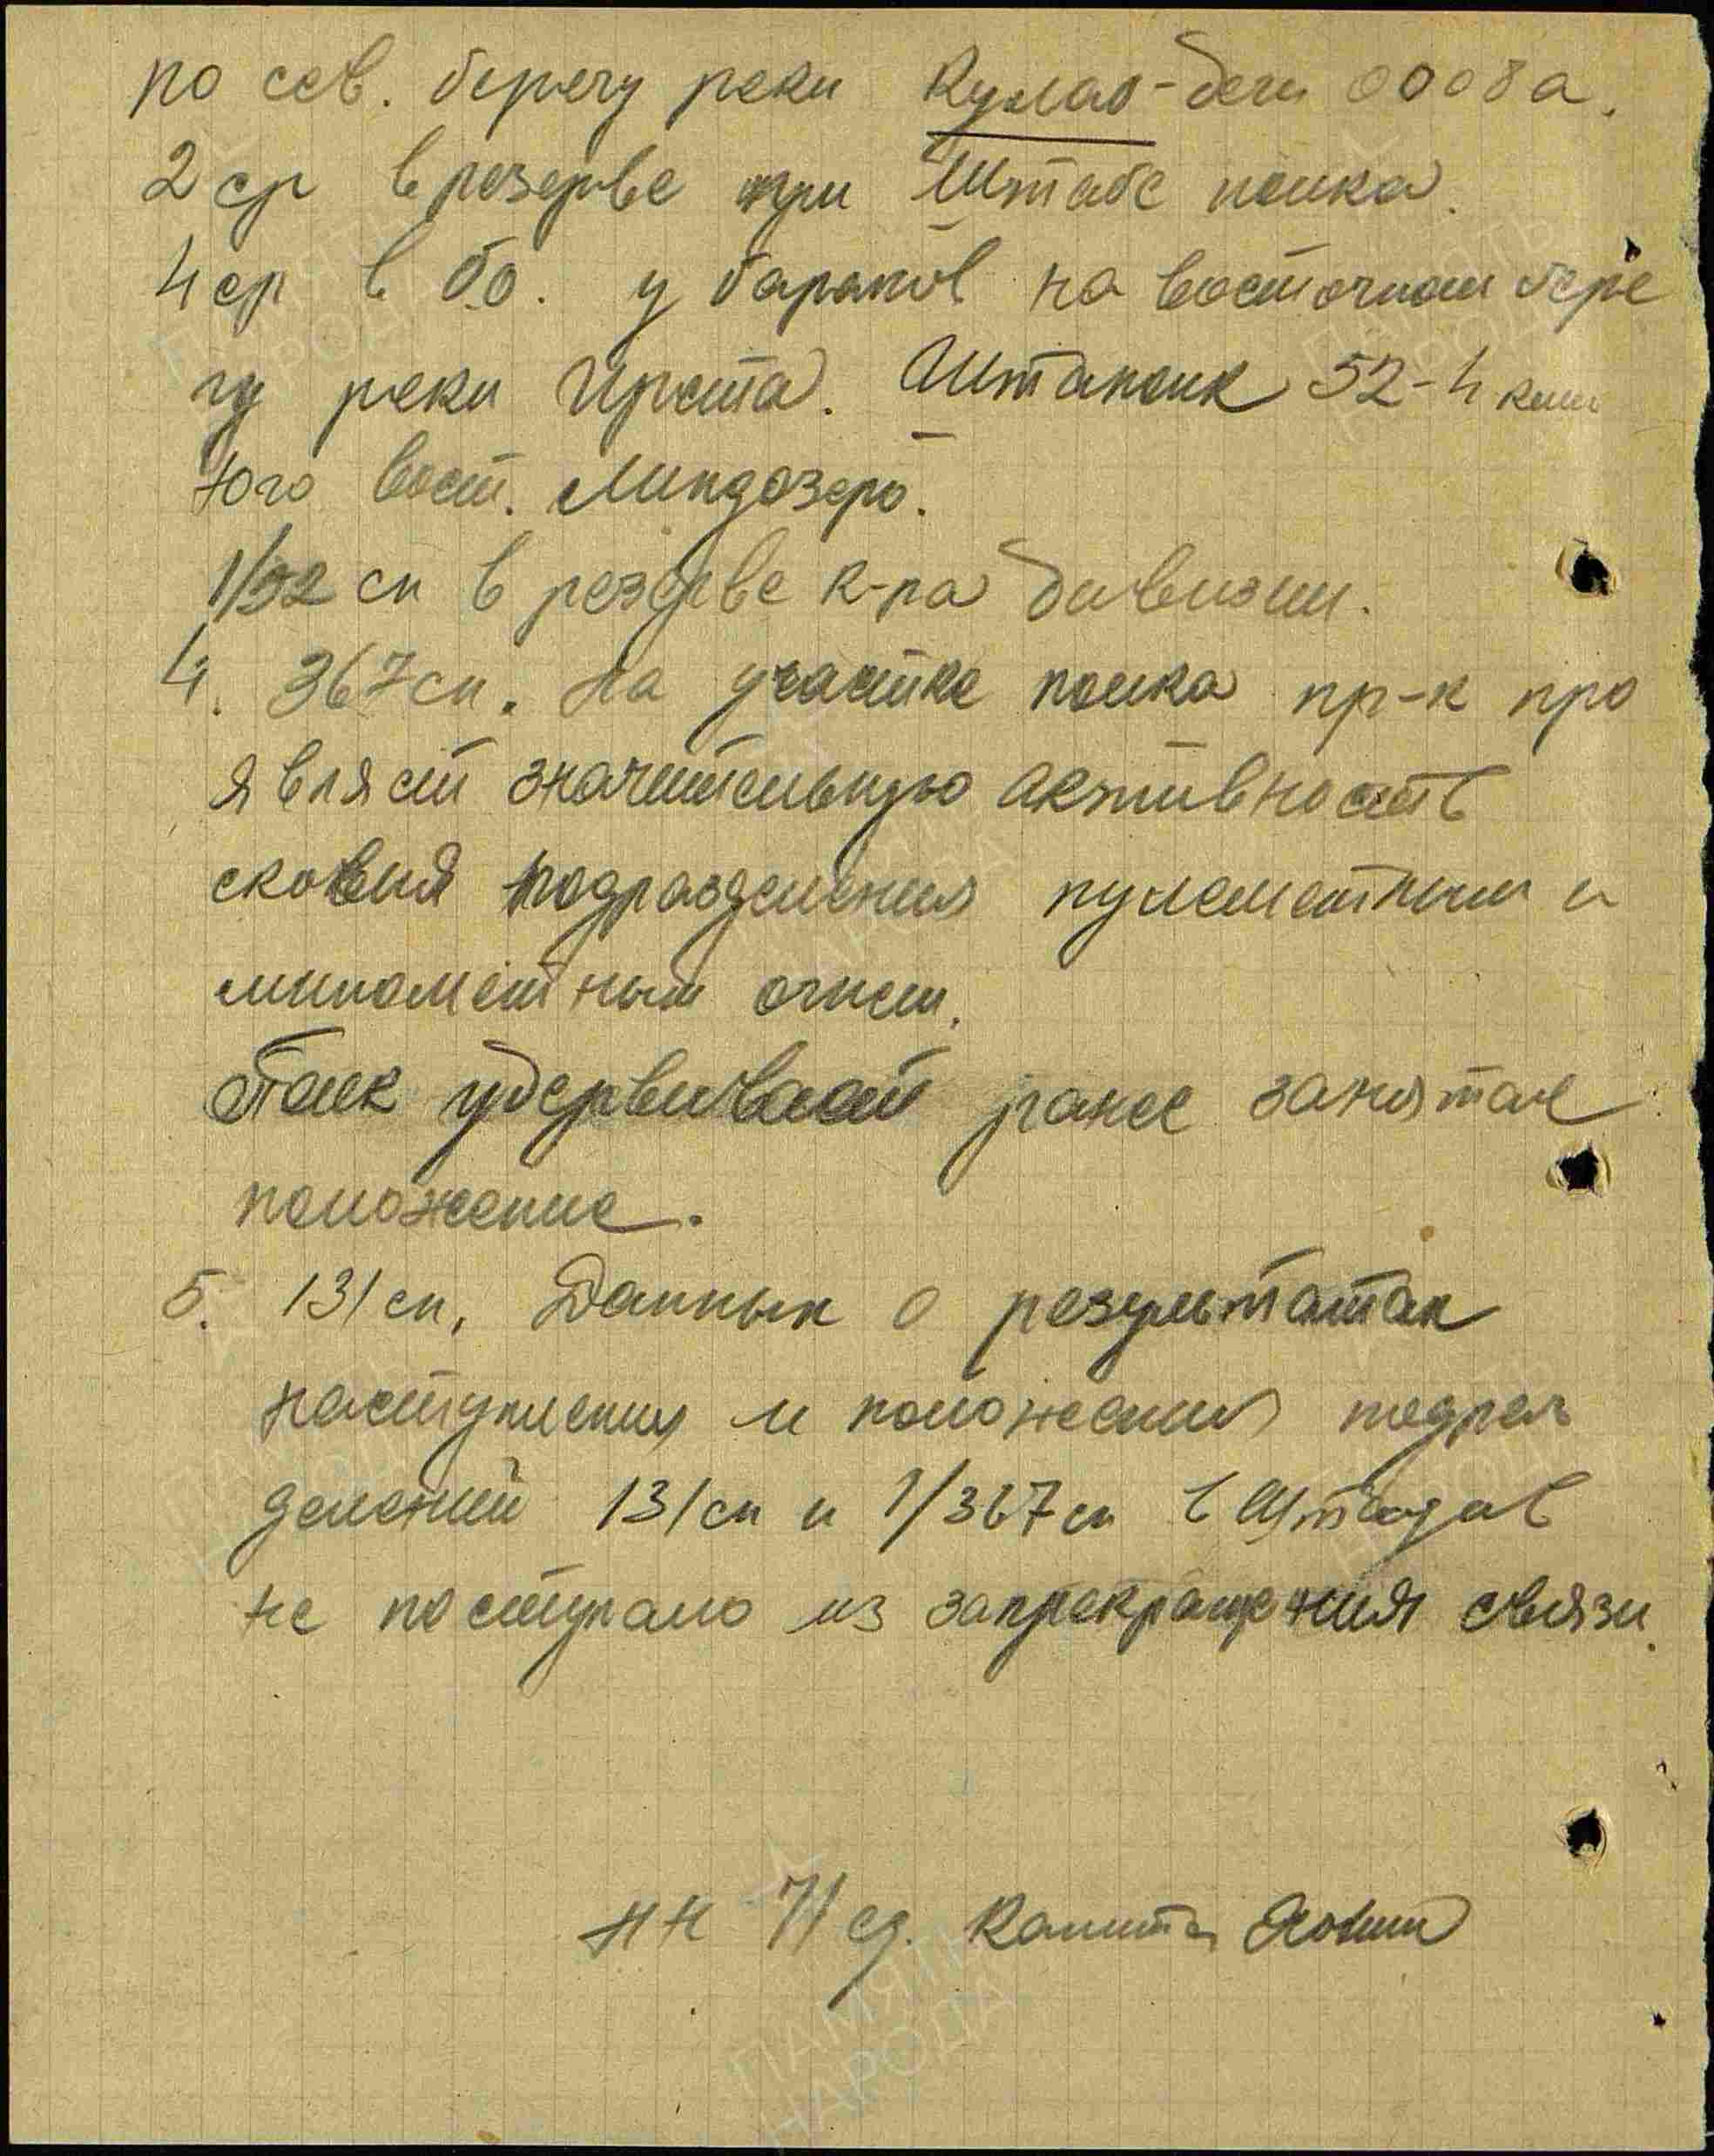 по сев. берегу реки Кумао-деги 0008а.
2 ср в резерве при Штабе полка.
4 ср в б.о. у бараков на восточном бере
гу реки Ирста. Штаполк 52 - 4 клм
юго вост. Линдозеро.
1/52 сп в резерве к-ра дивизии.
4. 367 сп. На участке полка пр-к про
являет значительную активность
сковыя подразделения пулеметным и
минометным огнем.
Полк удерживает ранее занятое
положение.
5. 131 сп, Данных о результатах
наступления и положения подраз
делений 131 сп и 1/367 сп в Штадив
не поступало из запрекращения связи.
НК 71 сд. Капитан
ПАМЯТЬ
НАРОДА